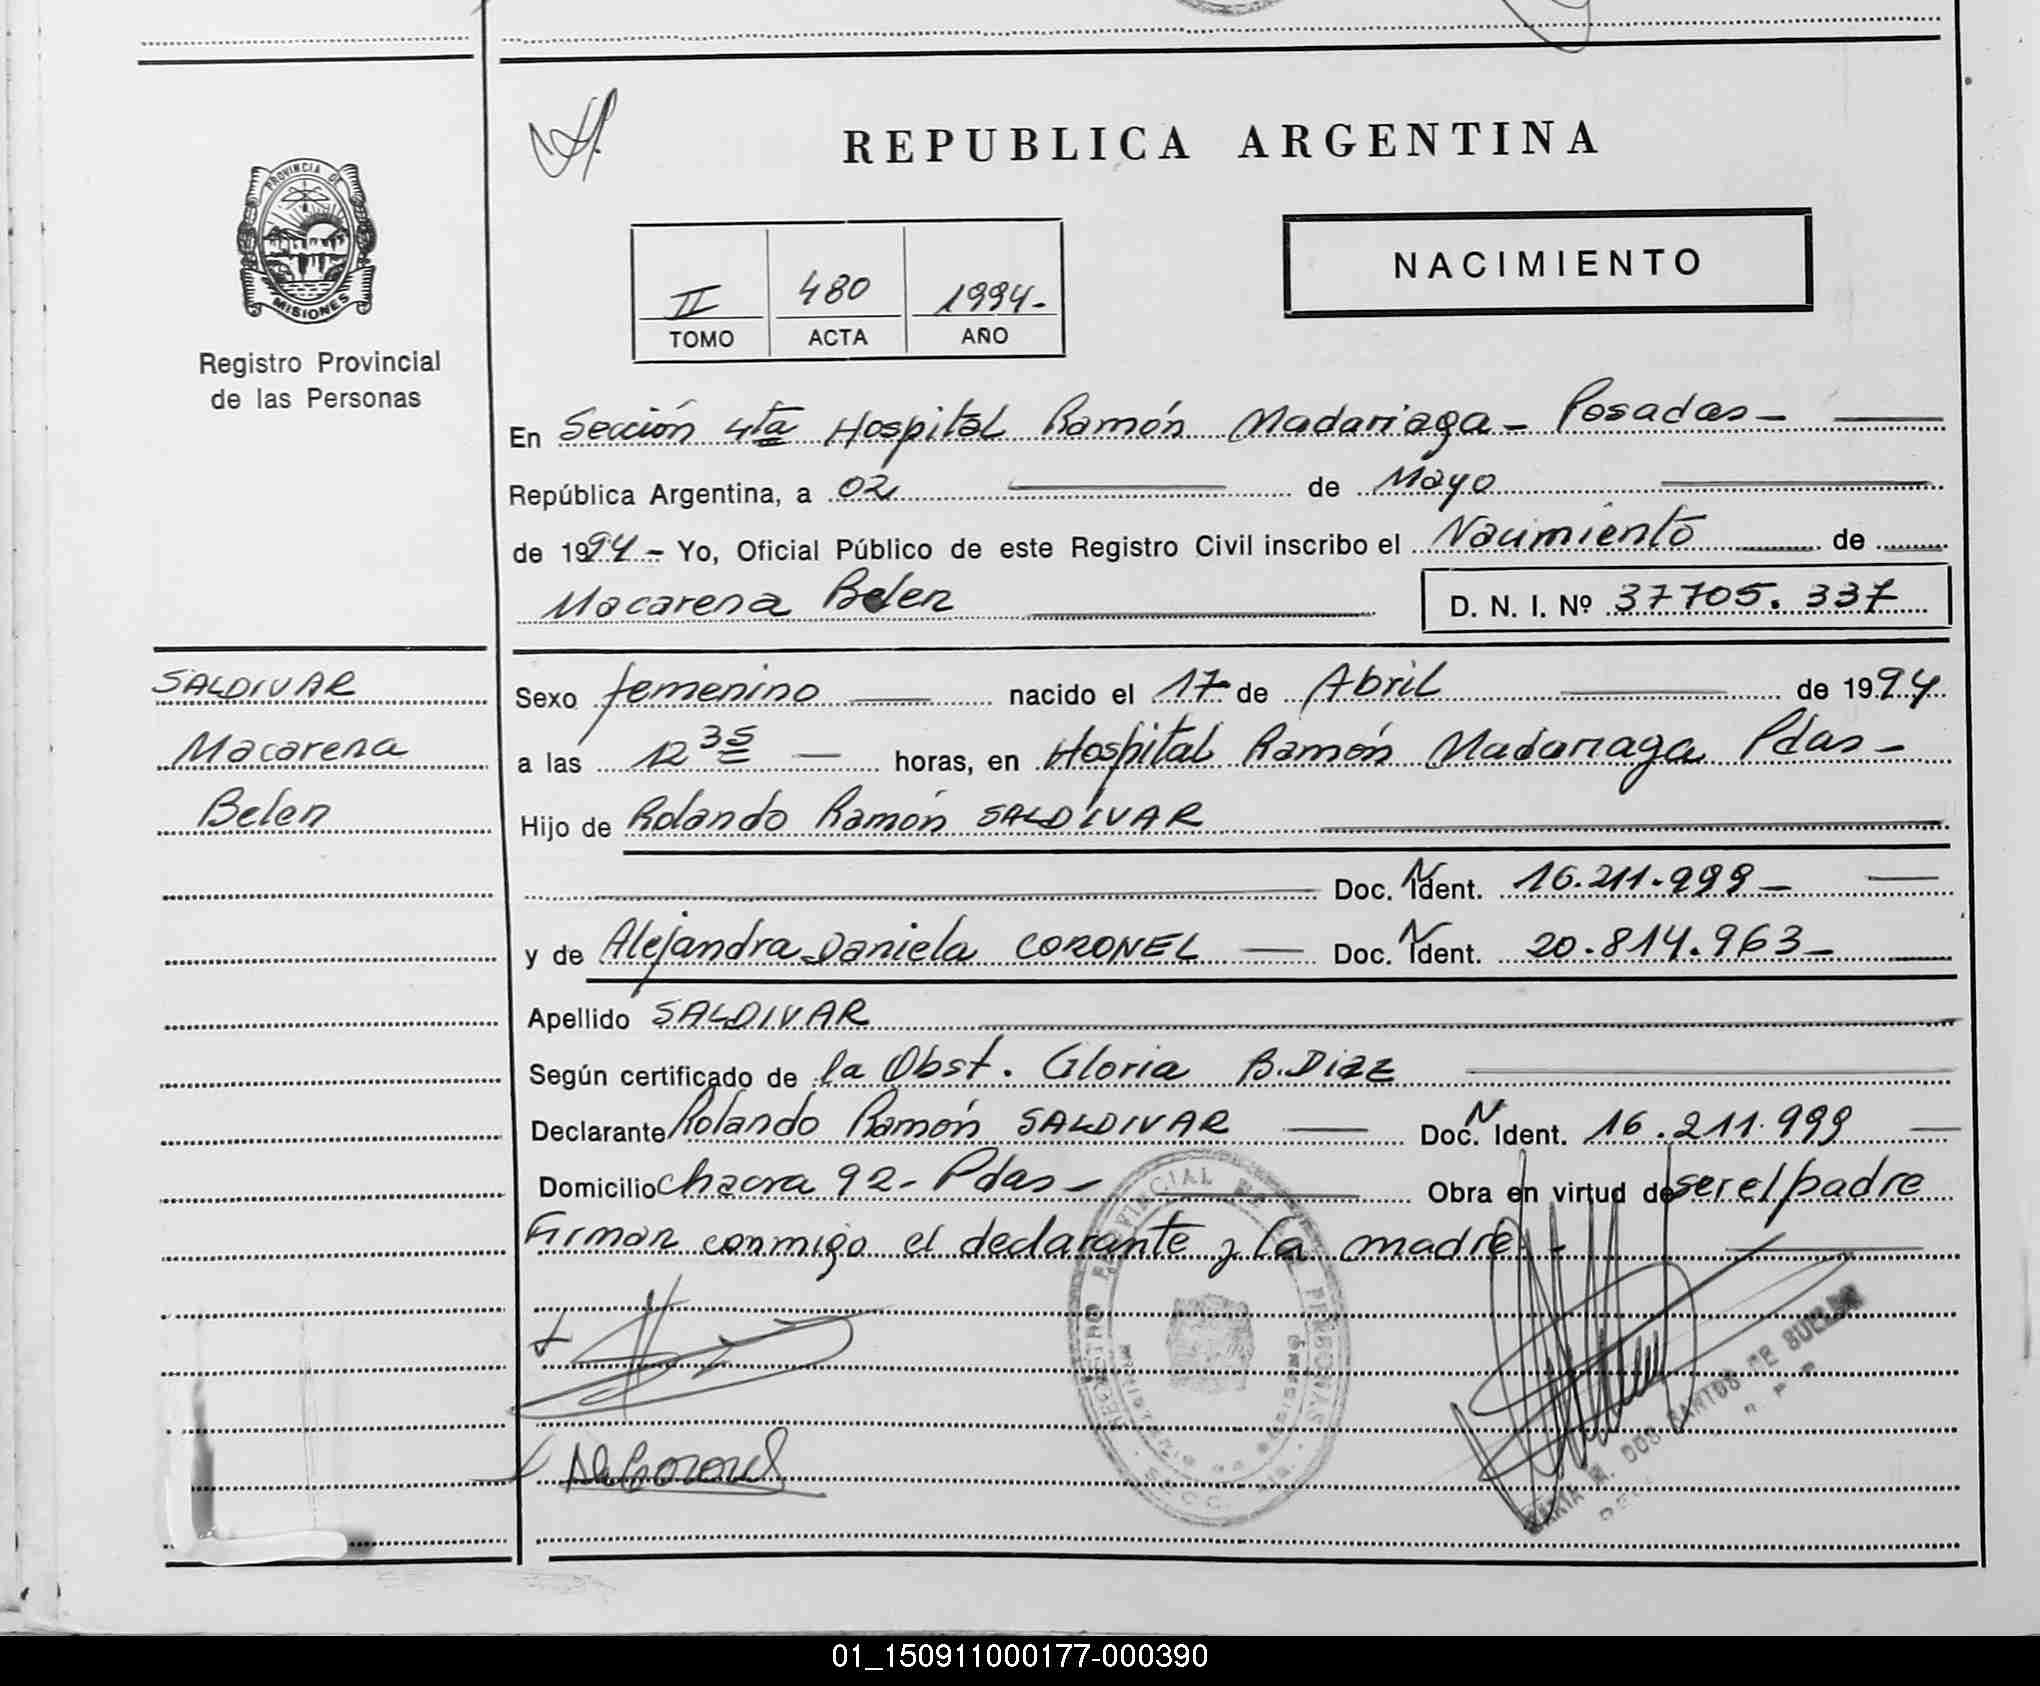 REPUBLICA ARGENTINA
PROVINCIA DE
MISIONES
Registro Provincial
de las Personas
NACIMIENTO
II 480 1994-
TOMO ACTA AÑO
En Sección 4ta Hospital Ramón Madariaga - Posadas -
República Argentina, a 02 de Mayo
de 1994 - Yo, Oficial Público de este Registro Civil inscribo el Nacimiento de
Macarena Belen D. N. I. Nº 37705.337
SALDIVAR
Macarena
Belen
Sexo femenino nacido el 17 de Abril de 1994
a las 12 35 horas, en Hospital Ramón Madariaga Pdas -
Hijo de Rolando Ramón SALDÍVAR
Doc. N Ident. 16.211.999 -
y de Alejandra Daniela CORONEL Doc. N Ident. 20.814.963 -
Apellido SALDIVAR
Según certificado de la Obst. Gloria B. Diaz
Declarante Rolando Ramón SALDIVAR Doc. N Ident. 16.211.999
Domicilio Chacra 92 - Pdas - Obra en virtud de ser el padre
Firman conmigo el declarante y la madre -
REGISTRO PROVINCIAL DE LAS PERSONAS
MARIA M. DOS SANTOS DE
01_150911000177-000390